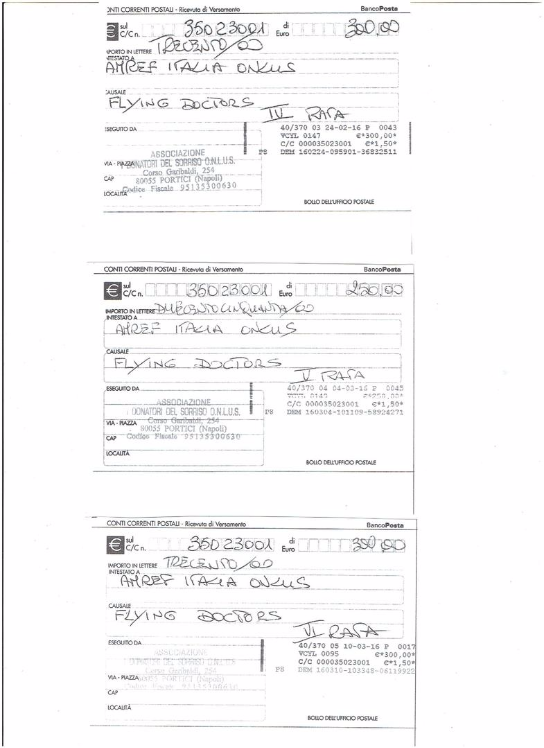 CONTI CORRENTI POSTALI - Ricevuta di Versamento BancoPosta
€ sul C/C n. 35023001 di Euro 300,00
IMPORTO IN LETTERE TRECENTO/00
INTESTATO A
AMREF ITALIA ONLUS
CAUSALE
FLYING DOCTORS
IV RATA
ESEGUITO DA
40/370 03 24-02-16 P 0043
VCYL 0147 €*300,00*
C/C 000035023001 €*1,50*
P8 DEM 160224-095901-36832511
ASSOCIAZIONE
DONATORI DEL SORRISO O.N.L.U.S.
Corso Garibaldi, 254
80055 PORTICI (Napoli)
Codice Fiscale 95135300630
VIA - PIAZZA
CAP
LOCALITÀ
BOLLO DELL'UFFICIO POSTALE
CONTI CORRENTI POSTALI - Ricevuta di Versamento BancoPosta
€ sul C/C n. 35023001 di Euro 250,00
IMPORTO IN LETTERE DUECENTOCINQUANTA/00
INTESTATO A
AMREF ITALIA ONLUS
CAUSALE
FLYING DOCTORS
V RATA
ESEGUITO DA
40/370 04 04-03-16 P 0045
VCYL 0147 €*250,00*
C/C 000035023001 €*1,50*
P8 DEM 160304-101109-58924271
ASSOCIAZIONE
DONATORI DEL SORRISO O.N.L.U.S.
Corso Garibaldi, 254
80055 PORTICI (Napoli)
Codice Fiscale 95135300630
VIA - PIAZZA
CAP
LOCALITÀ
BOLLO DELL'UFFICIO POSTALE
CONTI CORRENTI POSTALI - Ricevuta di Versamento BancoPosta
€ sul C/C n. 35023001 di Euro 300,00
IMPORTO IN LETTERE TRECENTO/00
INTESTATO A
AMREF ITALIA ONLUS
CAUSALE
FLYING DOCTORS
VI RATA
ESEGUITO DA
40/370 05 10-03-16 P 0017
VCYL 0095 €*300,00*
C/C 000035023001 €*1,50*
P8 DEM 160310-103348-06119922
ASSOCIAZIONE
DONATORI DEL SORRISO O.N.L.U.S.
Corso Garibaldi, 254
80055 PORTICI (Napoli)
Codice Fiscale 95135300630
VIA - PIAZZA
CAP
LOCALITÀ
BOLLO DELL'UFFICIO POSTALE